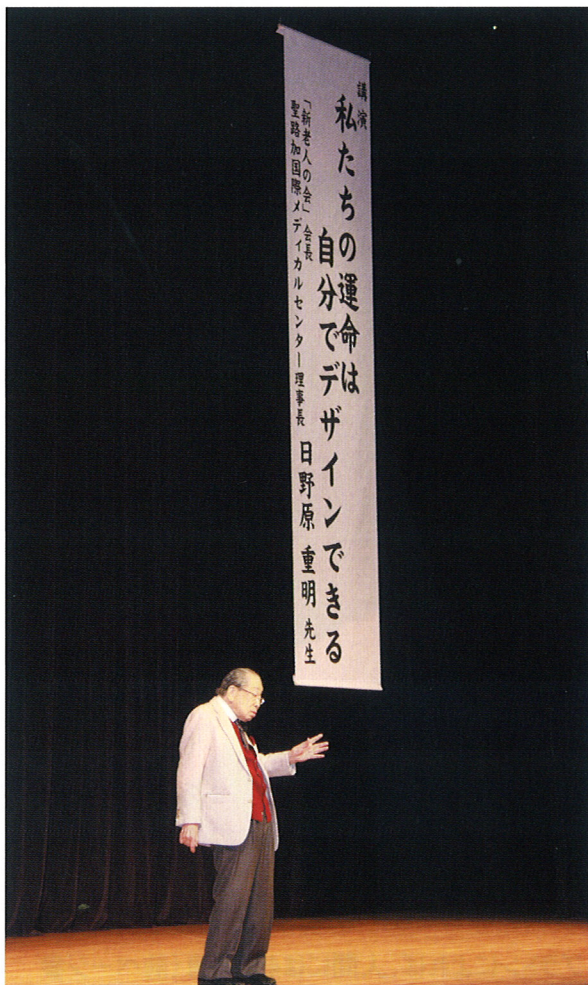 講演
私たちの運命は
自分でデザインできる
「新老人の会」会長
聖路加国際メディカルセンター理事長 日野原 重明 先生